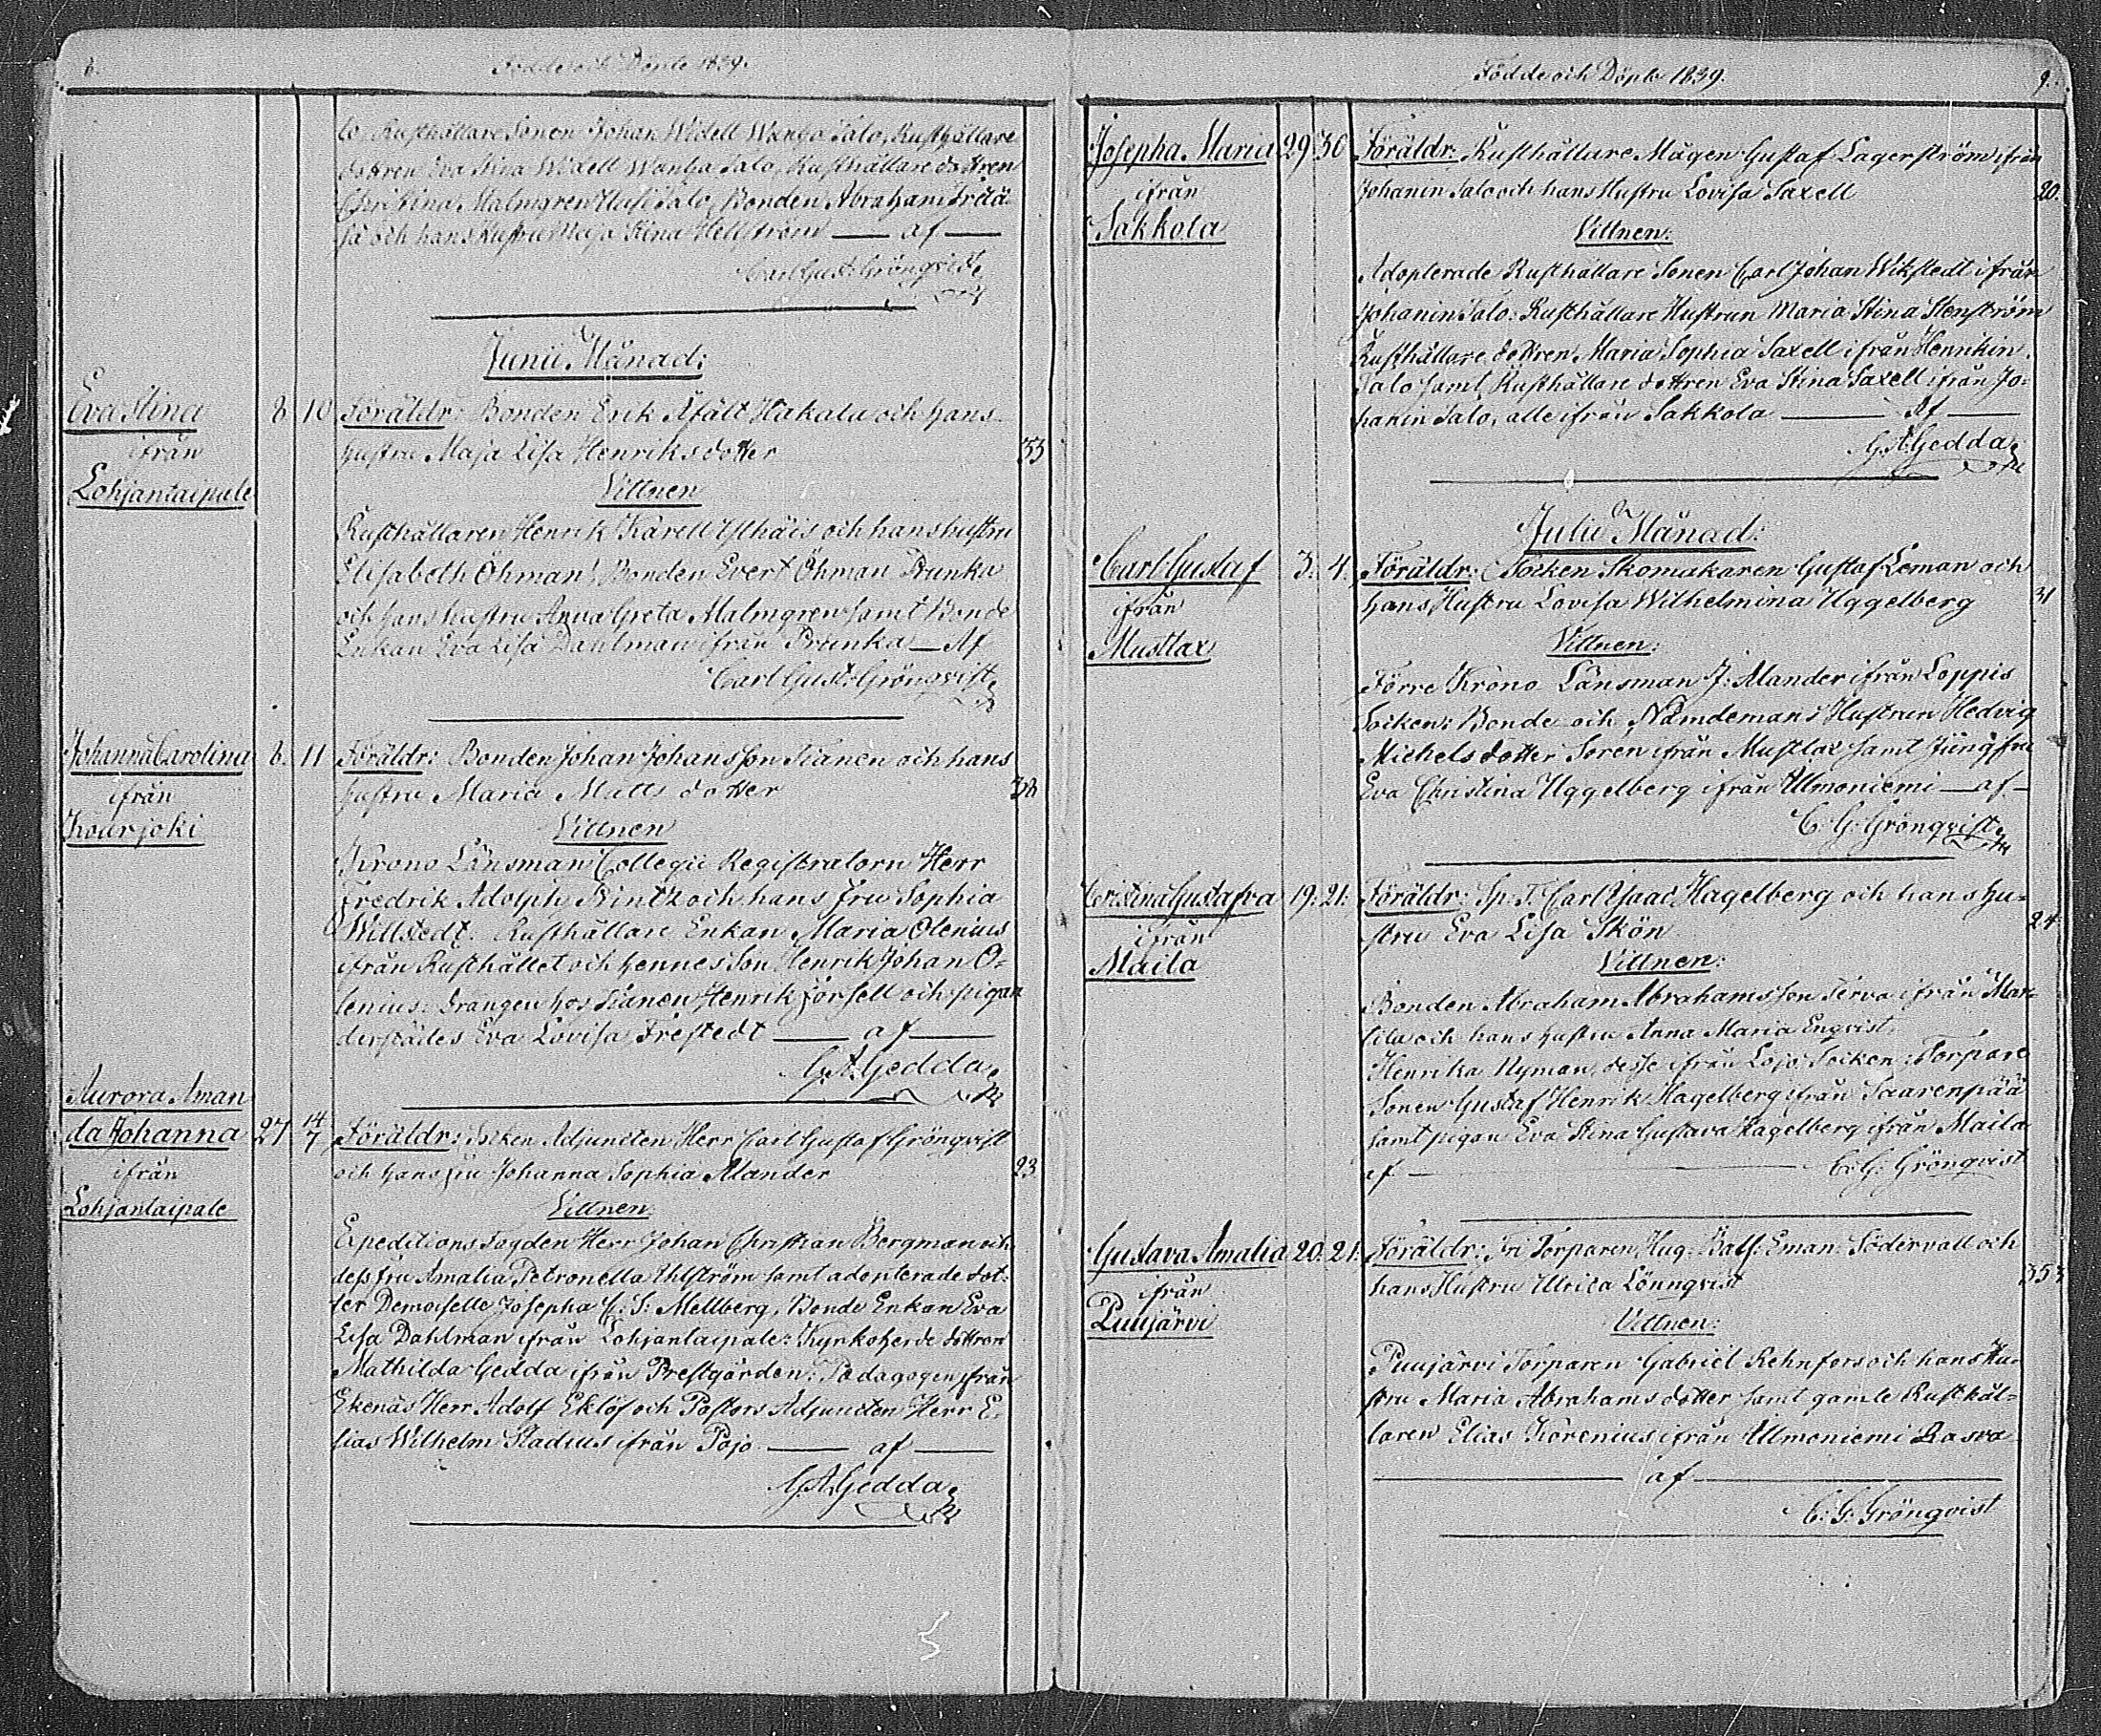 8.
Födde och Döpte 1839.
lo Rusthållare Sonen Johan Widell Wanha Talo, Rusthållare
dottren Eva Stina Widell Wanha Talo, Rusthållare dottren
Christina Malmgren Uusi Talo, Bonden Abraham
och hans hustru Maja Stina Hellström — af —
Carl Gust: Grönqvist
Junii Månad:
Eva Stina
ifrån
Lohjantaipale
8. 10 Föräldr: Bonden Erik Hakala och hans
hustru Maja Lisa Henriksdotter
33
Vittnen
Rusthållaren Henrik Karell och hans hustru
Elisabeth Öhman, Bonden Evert Öhman Prunka
och hans hustru Anna Greta Malmgren samt Bonde
Enkan Eva Lisa Dahlman ifrån Prunka — Af
Carl Gust: Grönqvist
Johanna Carolina
ifrån
Kourjoki
6. 11 Föräldr: Bonden Johan Johansson Sianen och hans
hustru Maria Matts dotter
38
Vittnen
Krono Länsman Collegii Registratorn Herr
Fredrik Adolph Printz och hans Fru Sophia
Willstedt. Rusthållare Enkan Maria Olenius
ifrån Rusthållet och hennes Son Henrik Johan O-
lenius: drängen hos Sianen Henrik Forsell och pigan
derstädes Eva Lovisa Frestedt — af —
G.A. Gedda
Aurora Aman
da Johanna
ifrån
Lohjantaipale
27 14/7 Föräldr: Socken Adjuncten Herr Carl Gustaf Grönqvist
och hans fru Johanna Sophia Mander
23
Vittnen
Expeditions Fogden Herr Johan Christian Bergman och
dess fru Amalia Petronella Uhlström samt adopterade dot-
ter Demoiselle Josepha C. S. Mellberg, Bonde Enkan Eva
Lisa Dahlman ifrån Lohjantaipale: Kyrkoherde dottren
Mathilda Gedda ifrån Prestgården: Pædagogen ifrån
Ekenäs Herr Adolf Eklöf och Pastors Adjuncten Herr E-
lias Wilhelm Stadius ifrån Pojo — af —
G.A. Gedda
Födde och Döpte 1839.
9.
Josepha Maria
ifrån
Sakkola
29 30 Föräldr: Rusthållare Mågen Gustaf Lagerström ifrån
Johanin Talo och hans Hustru Lovisa Saxell
20.
Vittnen:
Adopterade Rusthållare Sonen Carl Johan Wikstedt ifrån
Johanin Talo: Rusthållare Hustrun Maria Stina Stenström
Rusthållare dottren Maria Sophia Saxell ifrån Henrikin
Talo samt Rusthållare dottren Eva Stina Saxell ifrån Jo-
hanin Talo, alle ifrån Sakkola — Af —
G.A. Gedda
Julii Månad:
Carl Gustaf
ifrån
Musttax
3. 4. Föräldr: Socken Skomakaren Gustaf Leman och
hans Hustru Lovisa Wilhelmina Uggelberg
31
Vittnen:
Förre Krono Länsman J: Mander ifrån Loppis
Socken: Bonde och Nämdemans Hustrun Hedvig
Michelsdotter Soren ifrån Musttax samt Jungfru
Eva Christina Uggelberg ifrån Ullmoniemi — af —
C. G: Grönqvist
Cristina Gustafva
ifrån
Maila
19. 21. Föräldr: Sp. T. Carl Isaac Hagelberg och hans hu-
stru Eva Lisa Skön
24
Vittnen:
Bonden Abraham Abrahamsson Terva ifrån Mar-
tila och hans hustru Anna Maria Enqvist,
Henrika Nyman, desse ifrån Lojo Socken: Torpare
Sonen Gustaf Henrik Hagelberg ifrån Saarenpää
samt pigan Eva Stina Gustava Hagelberg ifrån Maila
af — C: G: Grönqvist
Gustava Amalia
ifrån
Puujärvi
20. 21. Föräldr: Fri Torparen Hug. Balt: Eman: Södervall och
hans Hustru Ulrica Lönnqvist
353
Vittnen:
Puujärvi Torparen Gabriel Rehnfors och hans Hu-
stru Maria Abrahamsdotter samt gamle Rusthål-
laren Elias Korenius ifrån Ullmoniemi Rasva
— af —
C: G: Grönqvist
5